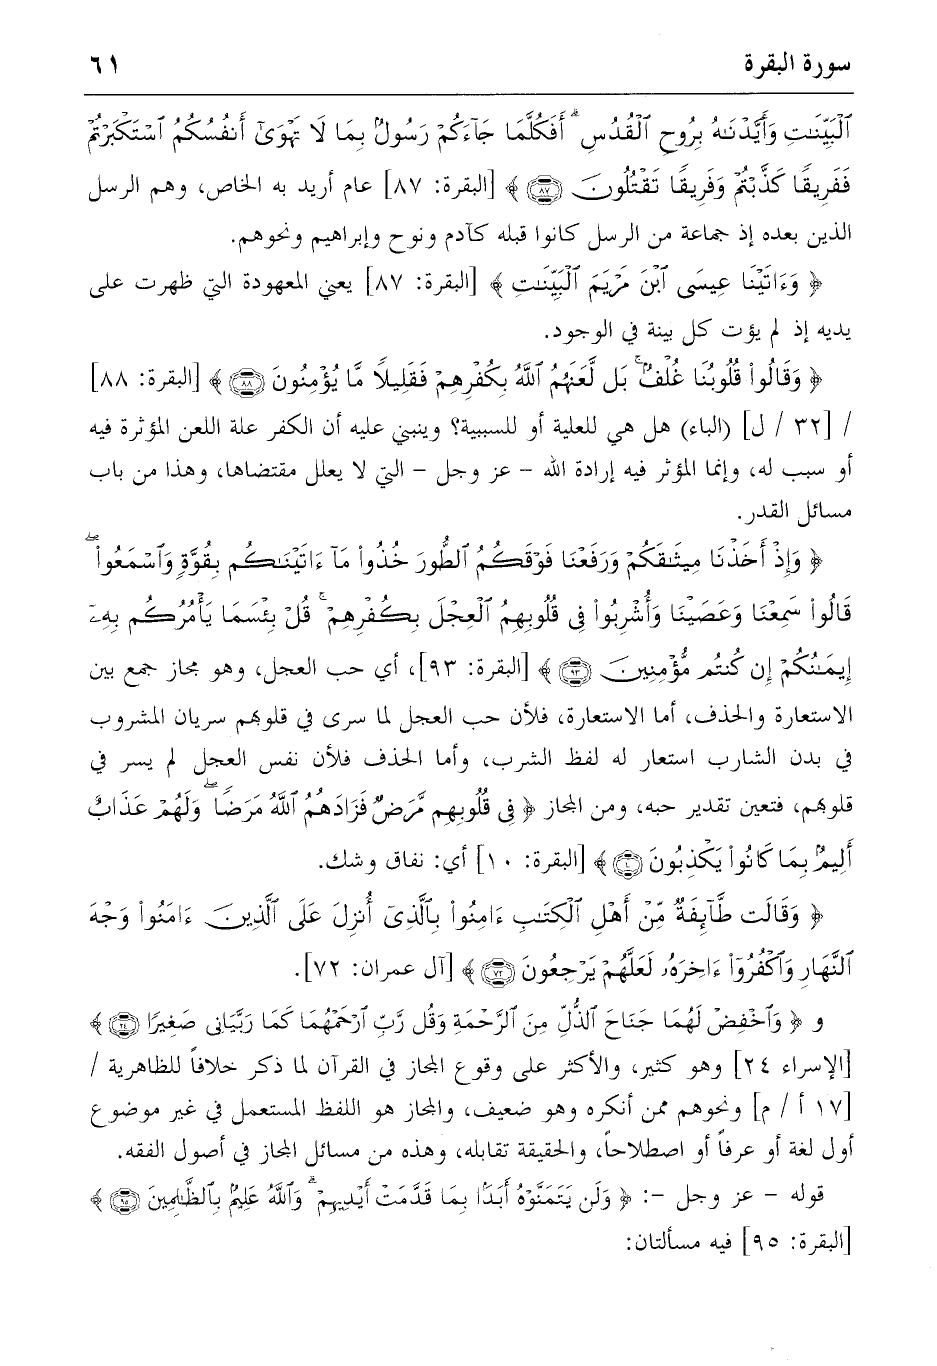 سورة البقرة ٦١
ٱلْبَيِّنَٰتِ وَأَيَّدْنَٰهُ بِرُوحِ ٱلْقُدُسِ ۗ أَفَكُلَّمَا جَآءَكُمْ رَسُولٌۢ بِمَا لَا تَهْوَىٰٓ أَنفُسُكُمُ ٱسْتَكْبَرْتُمْ
فَفَرِيقًا كَذَّبْتُمْ وَفَرِيقًا تَقْتُلُونَ ﴿٨٧﴾ ﴾ [البقرة: ٨٧] عام أريد به الخاص، وهم الرسل
الذين بعده إذ جماعة من الرسل كانوا قبله كآدم ونوح وإبراهيم ونحوهم.
﴿ وَءَاتَيْنَا عِيسَى ٱبْنَ مَرْيَمَ ٱلْبَيِّنَٰتِ ﴾ [البقرة: ٨٧] يعني المعهودة التي ظهرت على
يديه إذ لم يؤت كل بينة في الوجود.
﴿ وَقَالُوا۟ قُلُوبُنَا غُلْفٌۢ ۚ بَل لَّعَنَهُمُ ٱللَّهُ بِكُفْرِهِمْ فَقَلِيلًا مَّا يُؤْمِنُونَ ﴿٨٨﴾ ﴾ [البقرة: ٨٨]
/ [٣٢ / ل] (الباء) هل هي للعلية أو للسببية؟ وينبني عليه أن الكفر علة اللعن المؤثرة فيه
أو سبب له، وإنما المؤثر فيه إرادة الله - عز وجل - التي لا يعلل مقتضاها، وهذا من باب
مسائل القدر.
﴿ وَإِذْ أَخَذْنَا مِيثَٰقَكُمْ وَرَفَعْنَا فَوْقَكُمُ ٱلطُّورَ خُذُوا۟ مَآ ءَاتَيْنَٰكُم بِقُوَّةٍ وَٱسْمَعُوا۟ ۖ
قَالُوا۟ سَمِعْنَا وَعَصَيْنَا وَأُشْرِبُوا۟ فِى قُلُوبِهِمُ ٱلْعِجْلَ بِكُفْرِهِمْ ۚ قُلْ بِئْسَمَا يَأْمُرُكُم بِهِۦٓ
إِيمَٰنُكُمْ إِن كُنتُم مُّؤْمِنِينَ ﴿٩٣﴾ ﴾ [البقرة: ٩٣]، أي حب العجل، وهو مجاز جمع بين
الاستعارة والحذف، أما الاستعارة، فلأن حب العجل لما سرى في قلوبهم سريان المشروب
في بدن الشارب استعار له لفظ الشرب، وأما الحذف فلأن نفس العجل لم يسر في
قلوبهم، فتعين تقدير حبه، ومن المجاز ﴿ فِى قُلُوبِهِم مَّرَضٌ فَزَادَهُمُ ٱللَّهُ مَرَضًا ۖ وَلَهُمْ عَذَابٌ
أَلِيمٌۢ بِمَا كَانُوا۟ يَكْذِبُونَ ﴿١٠﴾ ﴾ [البقرة: ١٠] أي: نفاق وشك.
﴿ وَقَالَت طَّآئِفَةٌ مِّنْ أَهْلِ ٱلْكِتَٰبِ ءَامِنُوا۟ بِٱلَّذِىٓ أُنزِلَ عَلَى ٱلَّذِينَ ءَامَنُوا۟ وَجْهَ
ٱلنَّهَارِ وَٱكْفُرُوٓا۟ ءَاخِرَهُۥ لَعَلَّهُمْ يَرْجِعُونَ ﴿٧٢﴾ ﴾ [آل عمران: ٧٢].
و ﴿ وَٱخْفِضْ لَهُمَا جَنَاحَ ٱلذُّلِّ مِنَ ٱلرَّحْمَةِ وَقُل رَّبِّ ٱرْحَمْهُمَا كَمَا رَبَّيَانِى صَغِيرًا ﴿٢٤﴾ ﴾
[الإسراء ٢٤] وهو كثير، والأكثر على وقوع المجاز في القرآن لما ذكر خلافاً للظاهرية /
[١٧ أ / م] ونحوهم ممن أنكره وهو ضعيف، والمجاز هو اللفظ المستعمل في غير موضوع
أول لغة أو عرفاً أو اصطلاحاً، والحقيقة تقابله، وهذه من مسائل المجاز في أصول الفقه.
قوله - عز وجل -: ﴿ وَلَن يَتَمَنَّوْهُ أَبَدًۢا بِمَا قَدَّمَتْ أَيْدِيهِمْ ۗ وَٱللَّهُ عَلِيمٌۢ بِٱلظَّٰلِمِينَ ﴿٩٥﴾ ﴾
[البقرة: ٩٥] فيه مسألتان: